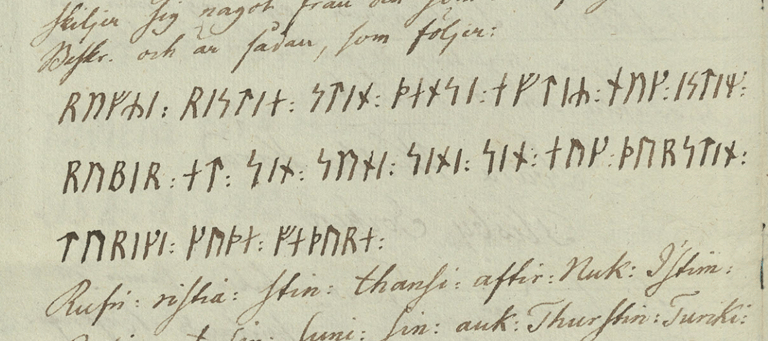 skiljer sig något från den som
Beskr. och är sådan, som följer:
ᚱᚢᚠᚾᛁ: ᚱᛁᛋᛏᛁᛅ: ᛋᛏᛁᚾ: ᚦᛅᚾᛋᛁ: ᛅᚠᛏᛁᛦ: ᚾᚢᚴ: ᛁᛋᛏᛁᛘ:
ᚱᚢᛒᛁᚱ: ᛅᛏ: ᛋᛁᚾ: ᛋᚢᚾᛁ: ᛋᛁᚾᛁ: ᛋᛁᚾ: ᛅᚢᚴ: ᚦᚢᚱᛋᛏᛁᚾ:
ᛏᚢᚱᛁᚴᛁ: ᚴᚢᚦᛅ: ᚠᛅᚦᚢᚱᛅ:
Rufni: ristia: stin: thansi: aftir: Nuk: Istim:
sin: suni: sin: auk: Thurstin: Turiki: